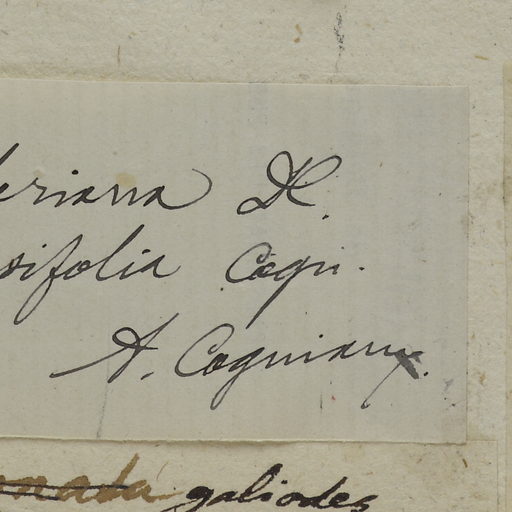 eriana DC.
sifolia Cogn.
A. Cogniaux.
galiodes